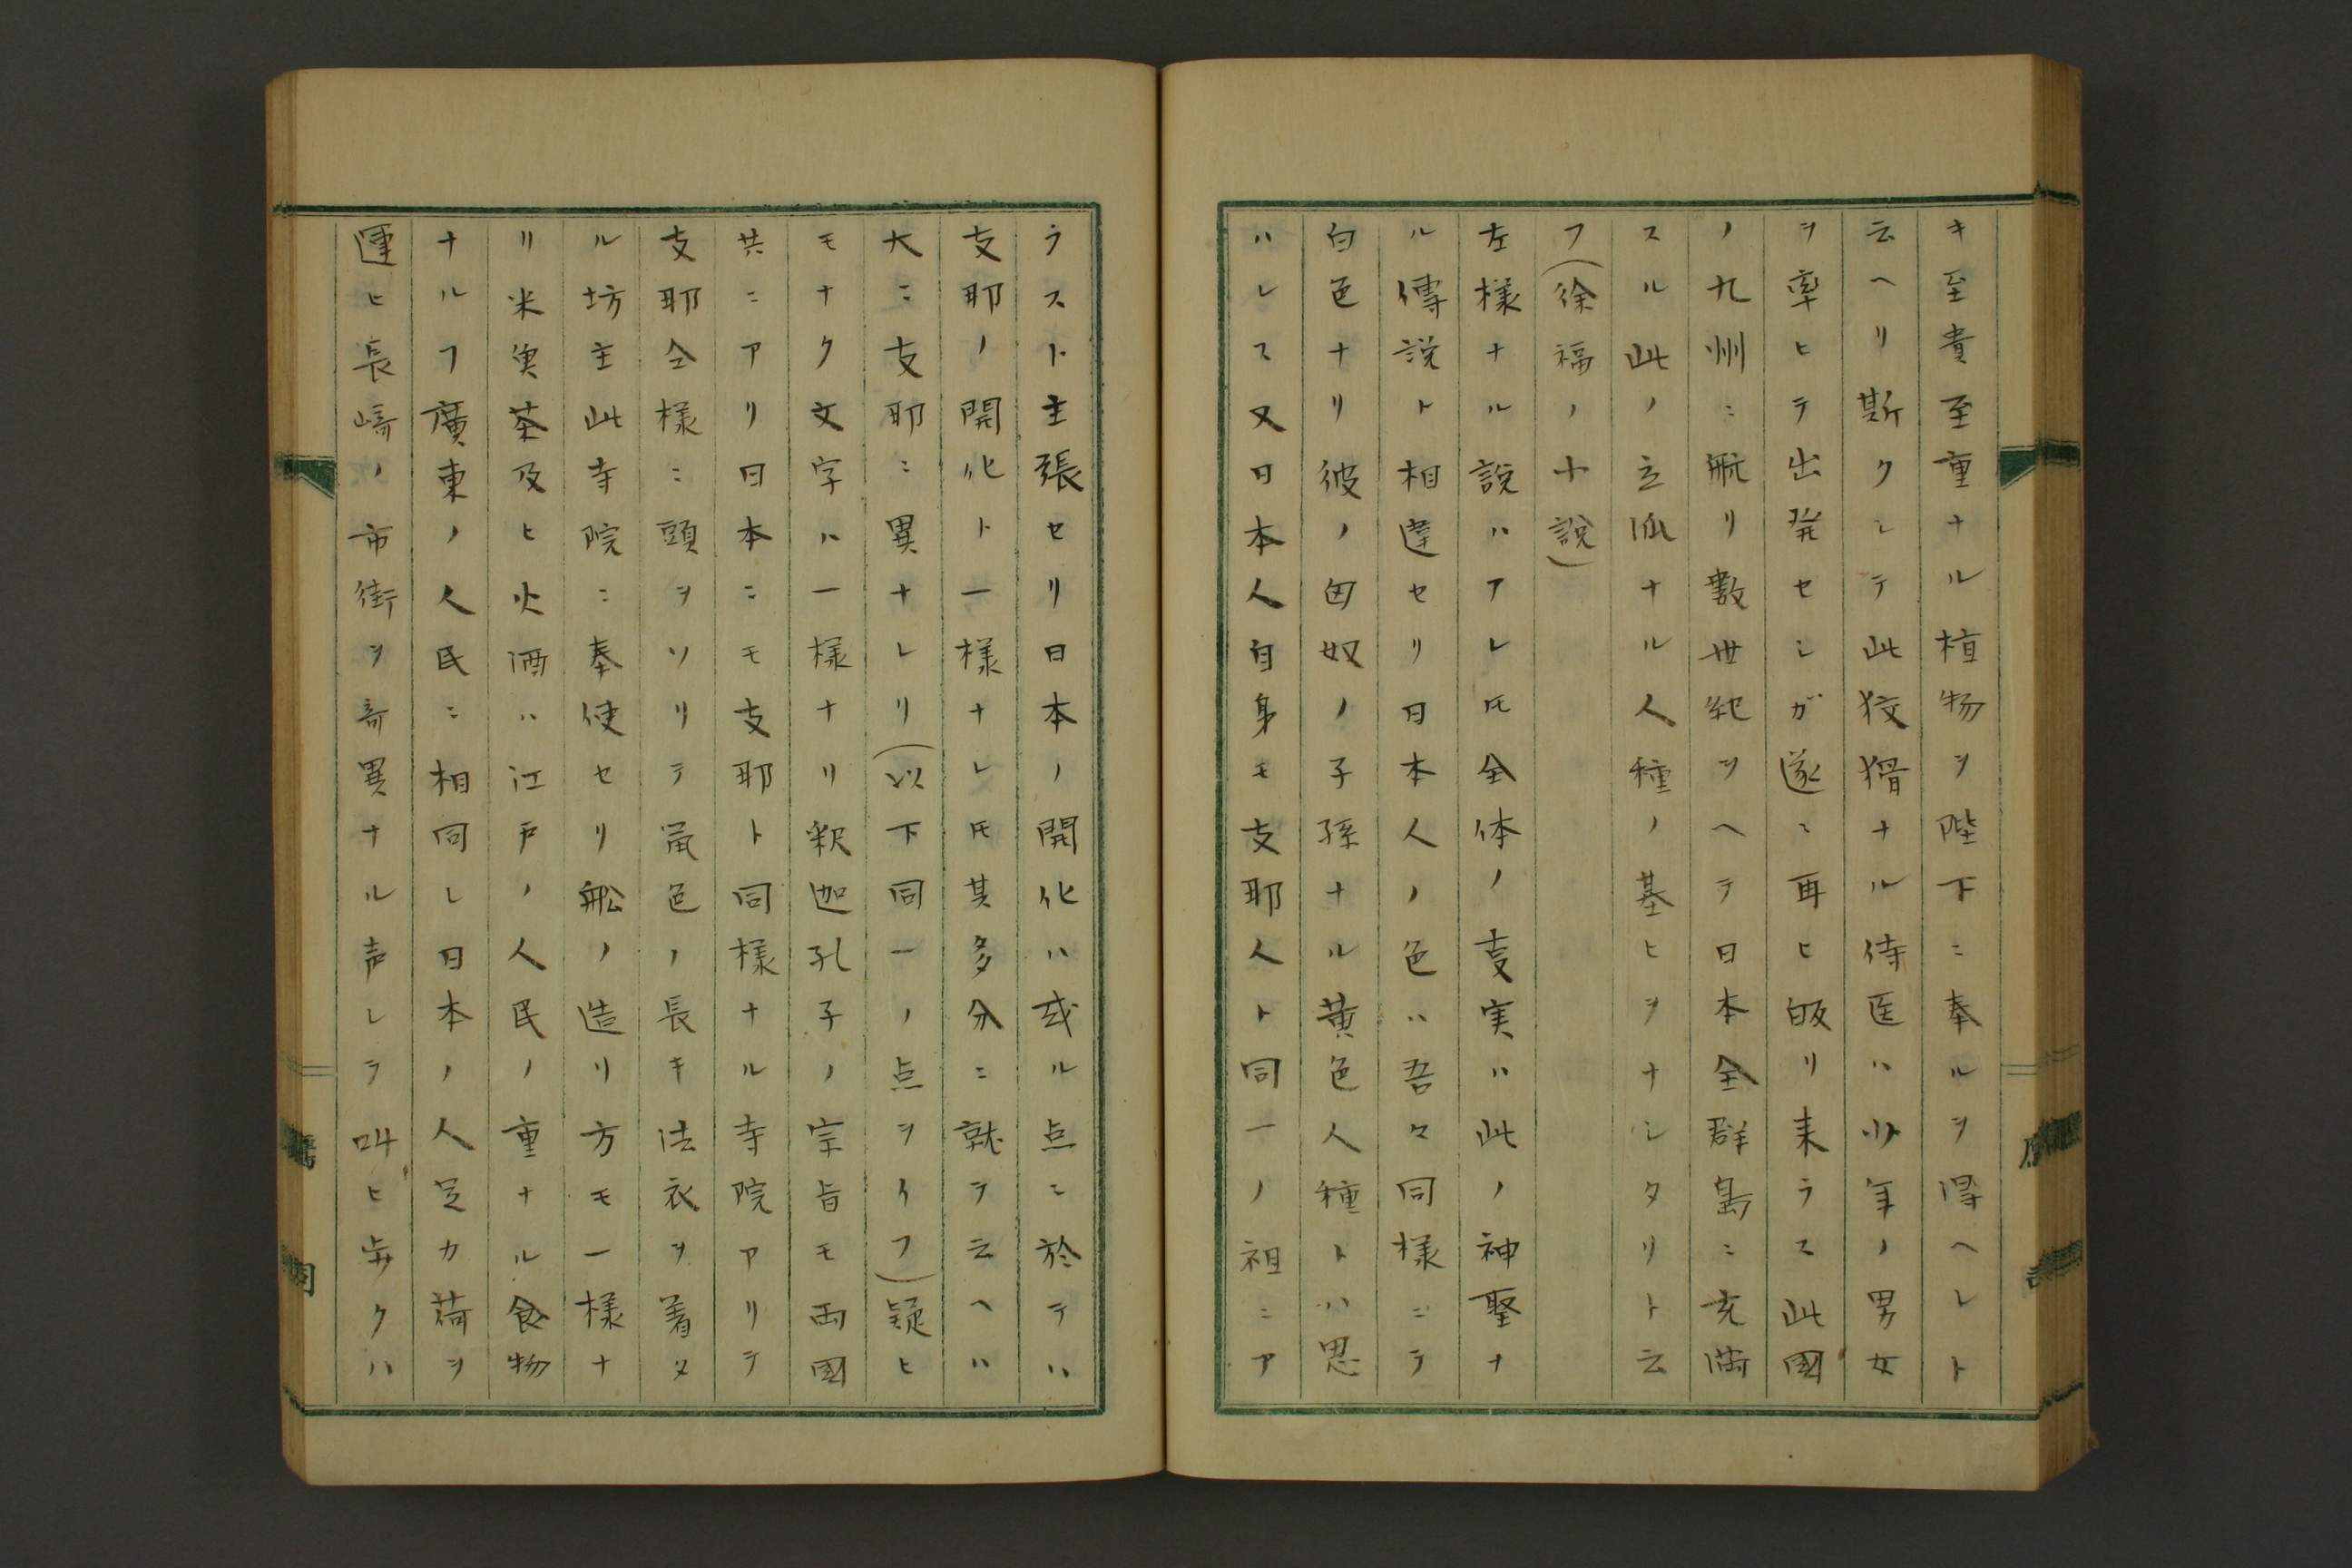 キ至貴至重ナル植物ヲ陛下ニ奉ルヲ得ヘレト
云ヘリ斯クシテ此狡猾ナル侍医ハ少年ノ男女
ヲ率ヒテ出発セシガ遂ニ再ヒ皈リ来ラス此國
ノ九州ニ航リ數世紀ヲヘテ日本全群島ニ充満
スル此ノ立派ナル人種ノ基ヒヲナシタリト云
フ(徐福ノ小説)
左様ナル説ハアレ𪜈全体ノ支実ハ此ノ神聖ナ
ル傳説ト相違セリ日本人ノ色ハ吾々同様ニテ
白色ナリ彼ノ匈奴ノ子孫ナル黄色人種トハ思
ハレス又日本人自身モ支耶人ト同一ノ祖ニア
ラスト主張セリ日本ノ開化ハ或ル点ニ於テハ
支耶ノ開化ト一様ナレ𪜈其多分ニ就テ云ヘハ
大ニ支耶ニ異ナレリ(以下同一ノ点ヲイフ)疑ヒ
モナク文字ハ一様ナリ釈迦孔子ノ宗旨モ両國
共ニアリ日本ニモ支耶ト同様ナル寺院アリテ
支耶仝様ニ頭ヲソリテ鼠色ノ長キ法衣ヲ着タ
ル坊主此寺院ニ奉使セリ舩ノ造リ方モ一様ナ
リ米魚茶及ヒ火酒ハ江戸ノ人民ノ重ナル食物
ナルフ廣東ノ人民ニ相同し日本ノ人足カ荷ヲ
運ヒ長崎ノ市街ヲ奇異ナル声レラ叫ヒ歩クハ